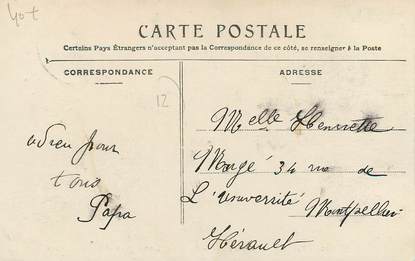 40t
CARTE POSTALE
Certains Pays Étrangers n'acceptant pas la Correspondance de ce côté, se renseigner à la Poste
CORRESPONDANCE
12
adieu pour
tous
Papa
ADRESSE
Melle Henriette
Mazgé 34 rue de
L'Université
Montpellier
Hérault